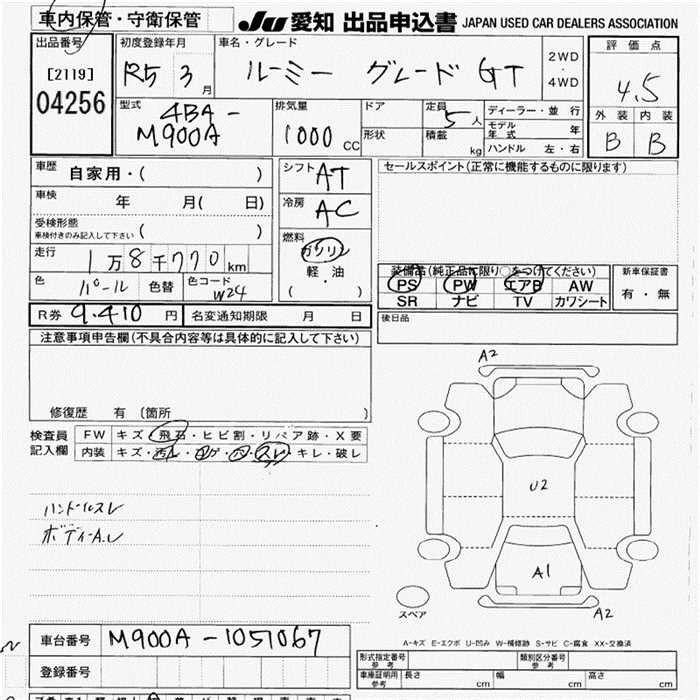 車内保管・守衛保管 JU 愛知 出品申込書 JAPAN USED CAR DEALERS ASSOCIATION
出品番号
[2119]
04256
初度登録年月
R5 3月
車名・グレード
ルーミー グレード GT
2WD
4WD
評価点
4.5
外装 内装
B B
型式
4BA-
M900A
排気量
1000 CC
ドア
形状
定員
5人
積載
kg
ディーラー・並行
モデル年式 年
ハンドル 左・右
車歴
自家用・( )
車検
年 月( 日)
受検形態
車検付きのみ記入して下さい ( )
走行
1万8千770km
色
パール
色替
色コード
W24
シフト
AT
冷房
AC
燃料
ガソリン
軽油
・
( )
セールスポイント(正常に機能するものに限ります)
装備品(純正品に限り○をつけてください)
PS PW エアB AW
SR ナビ TV カワシート
新車保証書
有・無
後日品
R券 9.410 円
名変通知期限 月 日
注意事項申告欄(不具合内容等は具体的に記入して下さい)
修復歴 有(箇所 )
検査員
記入欄
FW キズ・飛石・ヒビ割・リペア跡・X要
内装 キズ・汚レ・コゲ・穴・スレ・キレ・破レ
ハンドルスレ
ボディーA.U
A2
U2
A1
A2
スペア
A-キズ E-エクボ U-凹み W-補修跡 S-サビ C-腐食 XX-交換済
車台番号
M900A-1051067
登録番号
形式指定番号
参考
類別区分番号
参考
車庫証明用
参考
長さ cm
幅 cm
高さ cm